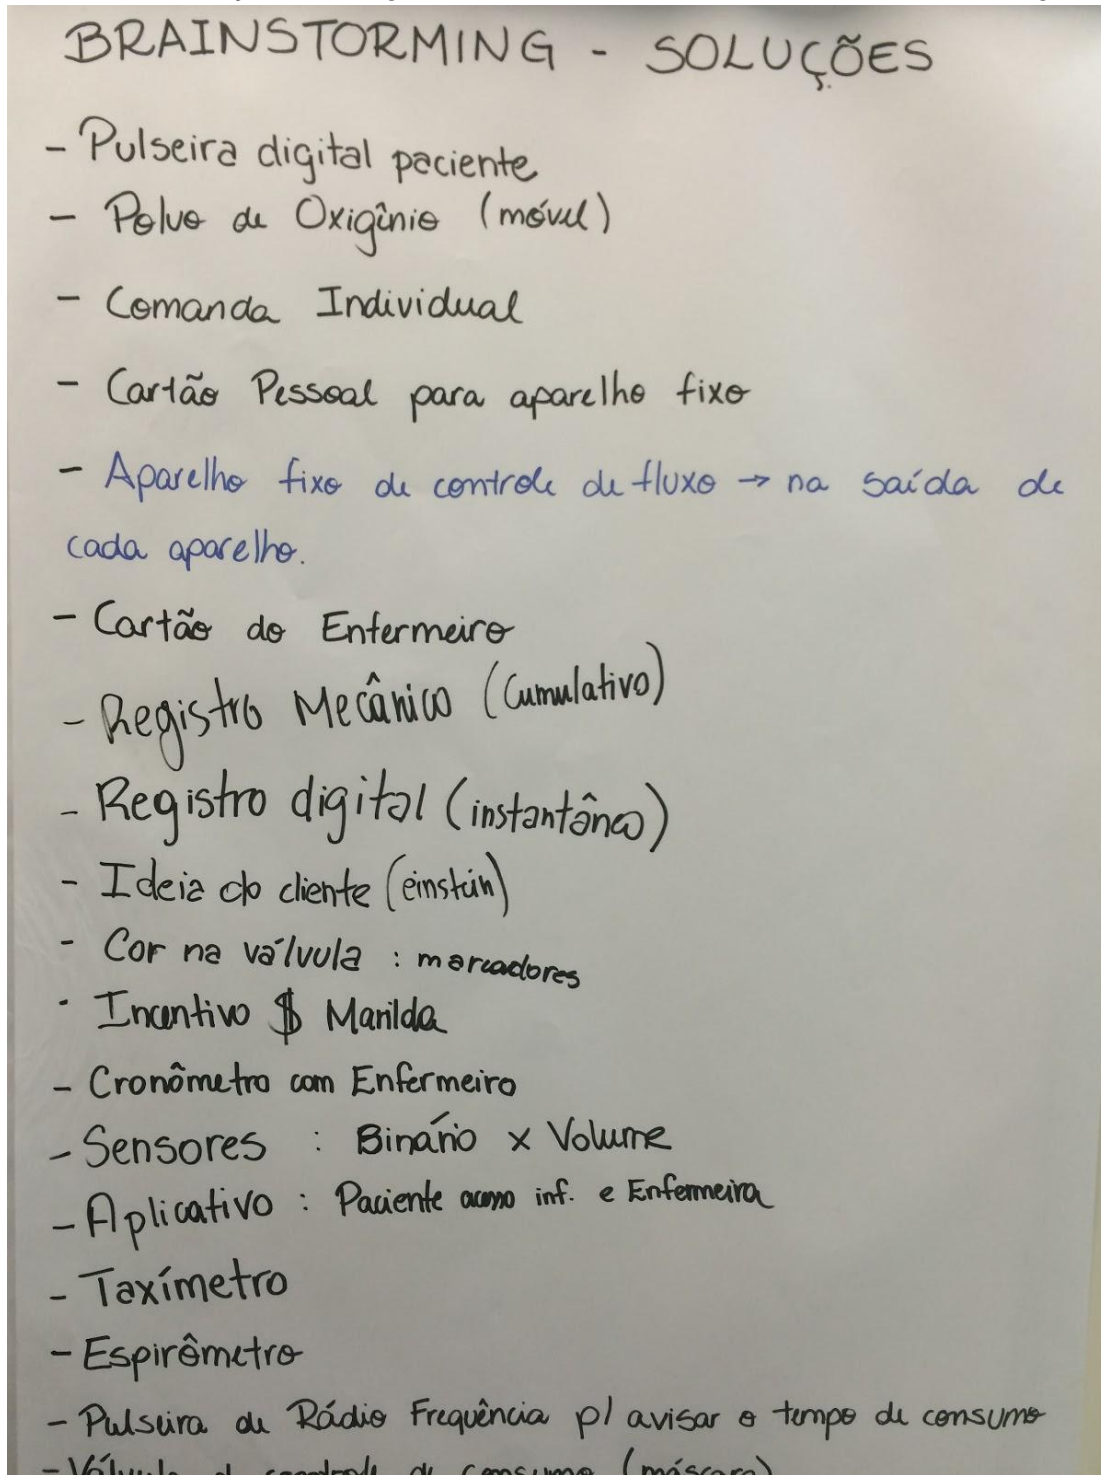 BRAINSTORMING - SOLUÇÕES
- Pulseira digital paciente
- Polvo de Oxigênio (móvel)
- Comanda Individual
- Cartão Pessoal para aparelho fixo
- Aparelho fixo de controle de fluxo → na saída de
cada aparelho.
- Cartão do Enfermeiro
- Registro Mecânico (Cumulativo)
- Registro digital (instantâneo)
- Ideia do cliente (einstein)
- Cor na válvula : marcadores
- Incentivo $ Marilda
- Cronômetro com Enfermeiro
- Sensores : Binário x Volume
- Aplicativo : Paciente acesso inf. e Enfermeira
- Taxímetro
- Espirômetro
- Pulseira de Rádio Frequência p/ avisar o tempo de consumo
- Válvula de controle de consumo (máscara)